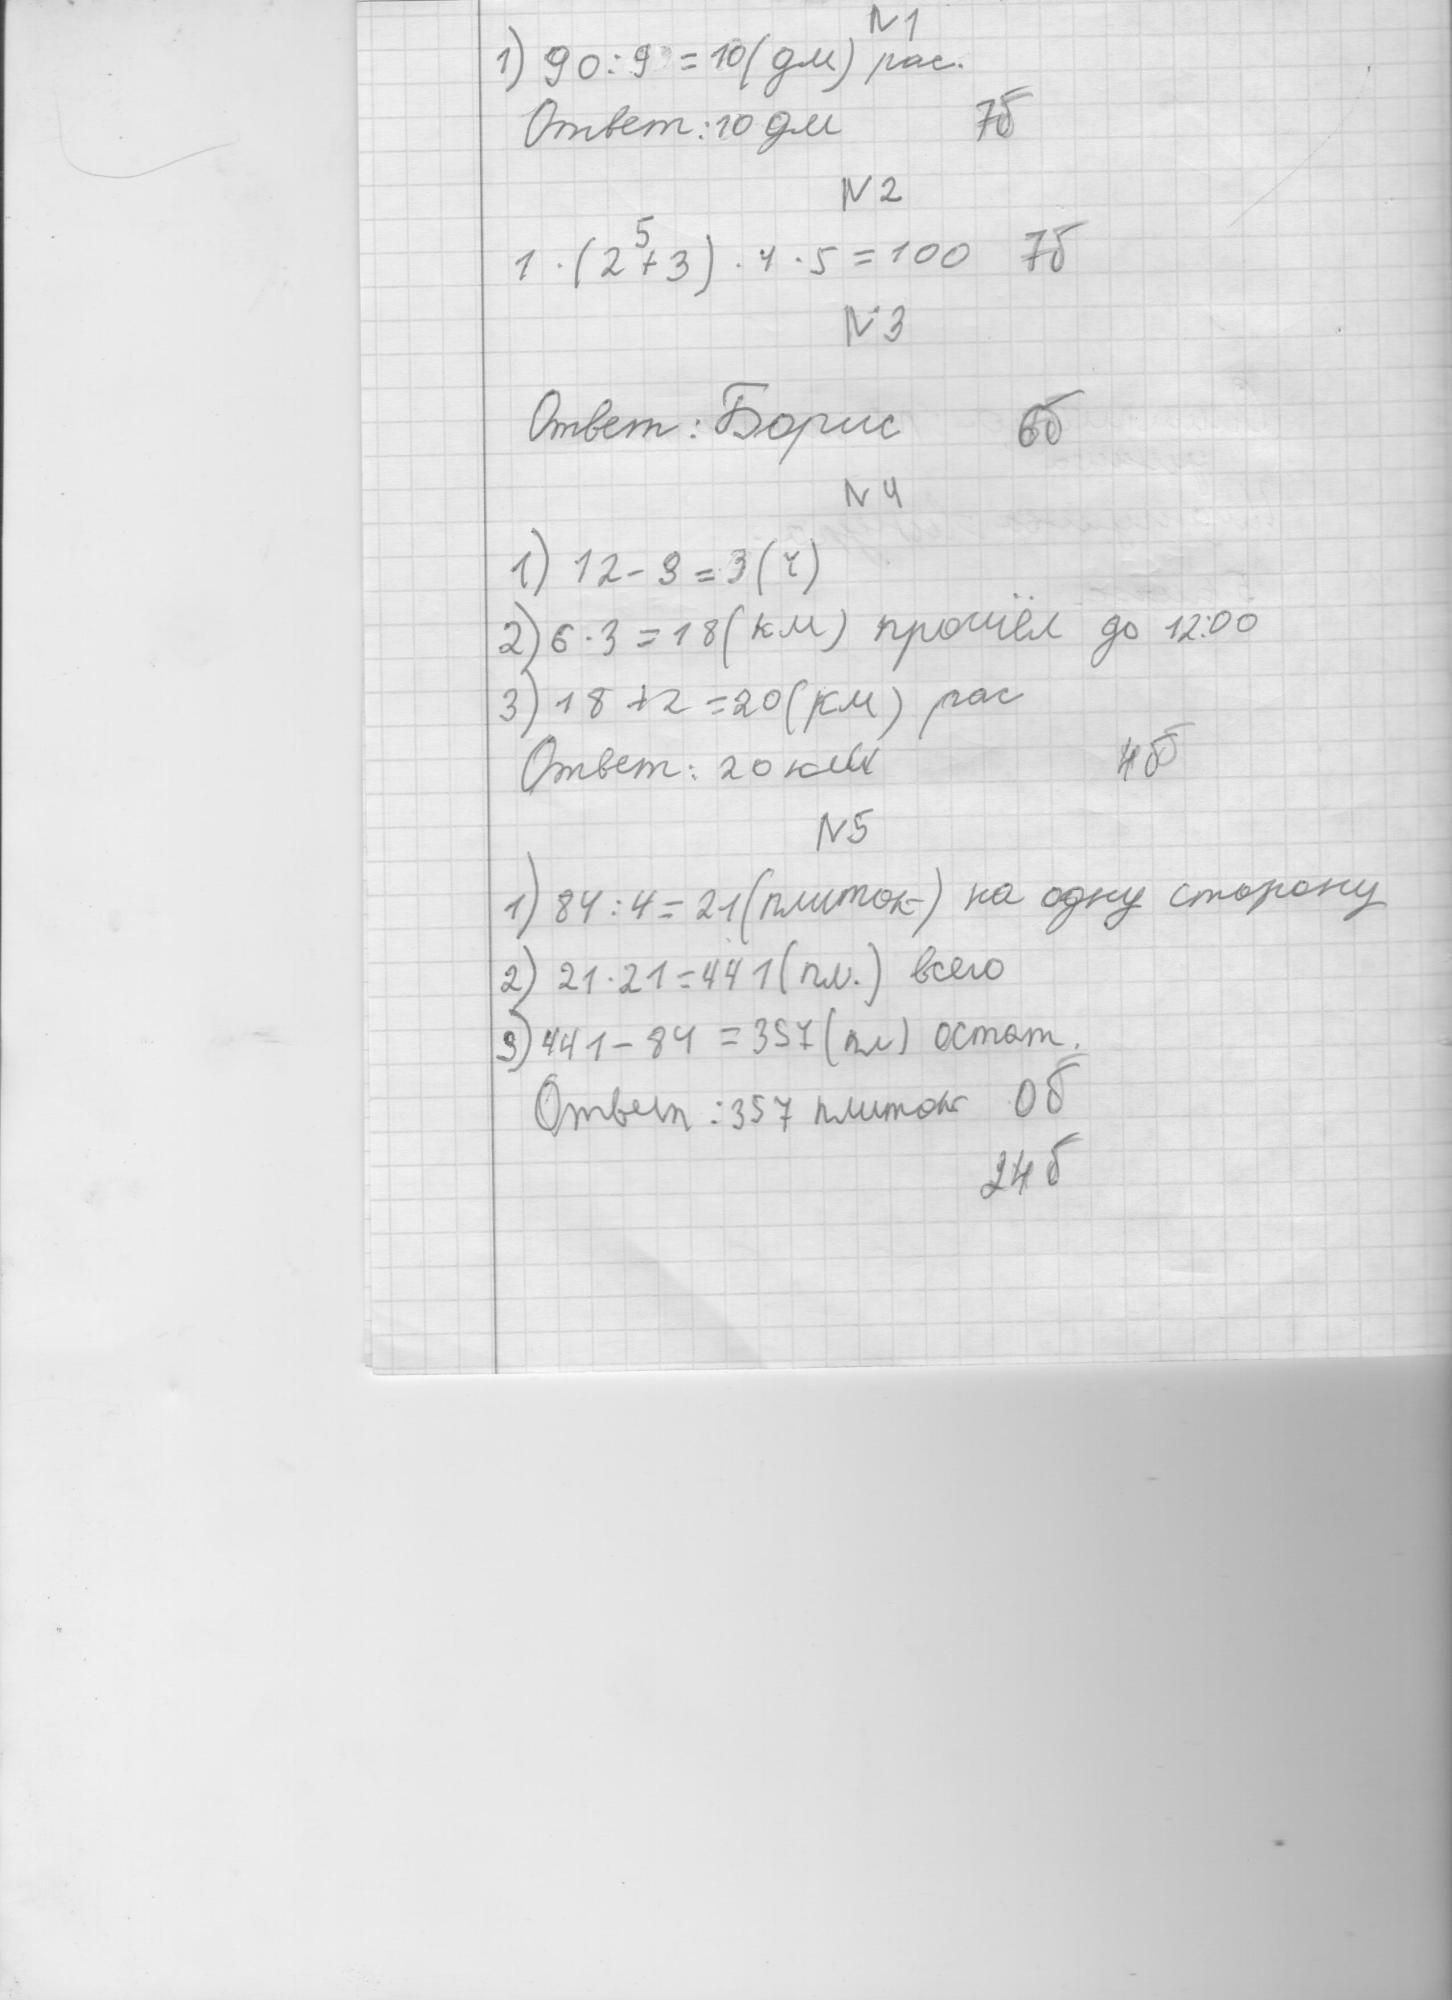 N1
1) 90:9 = 10 (дм) рас.
Ответ: 10 дм 7б
N2
5
1 · (2 + 3) · 4 · 5 = 100 7б
N3
Ответ: Борис 6б
N4
1) 12 - 9 = 3 (ч)
2) 6 · 3 = 18 (км) прошёл до 12:00
3) 18 + 2 = 20 (км) рас
Ответ: 20 км 4б
N5
1) 84 : 4 = 21 (плиток) на одну сторону
2) 21 · 21 = 441 (пл.) всего
3) 441 - 84 = 357 (пл) остат.
Ответ: 357 плиток 0б
24б